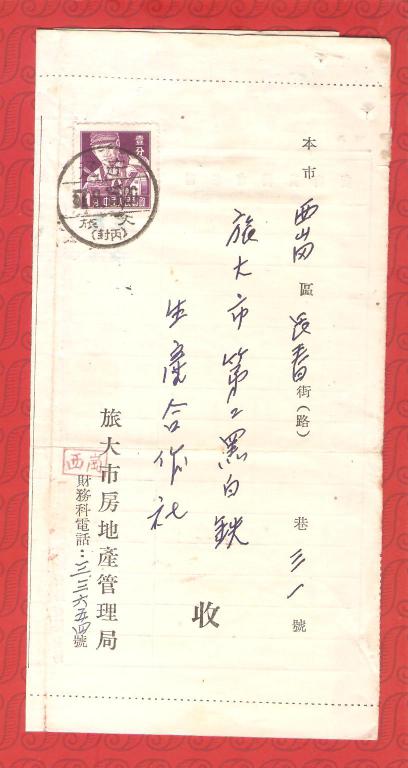 本市西崗區長春街(路)巷三一號
旅大市第二黑白鉄
生産合作社
收
旅大市房地產管理局
西崗
財務科電話：三三六五四號
壹分
旅大
(丙封)